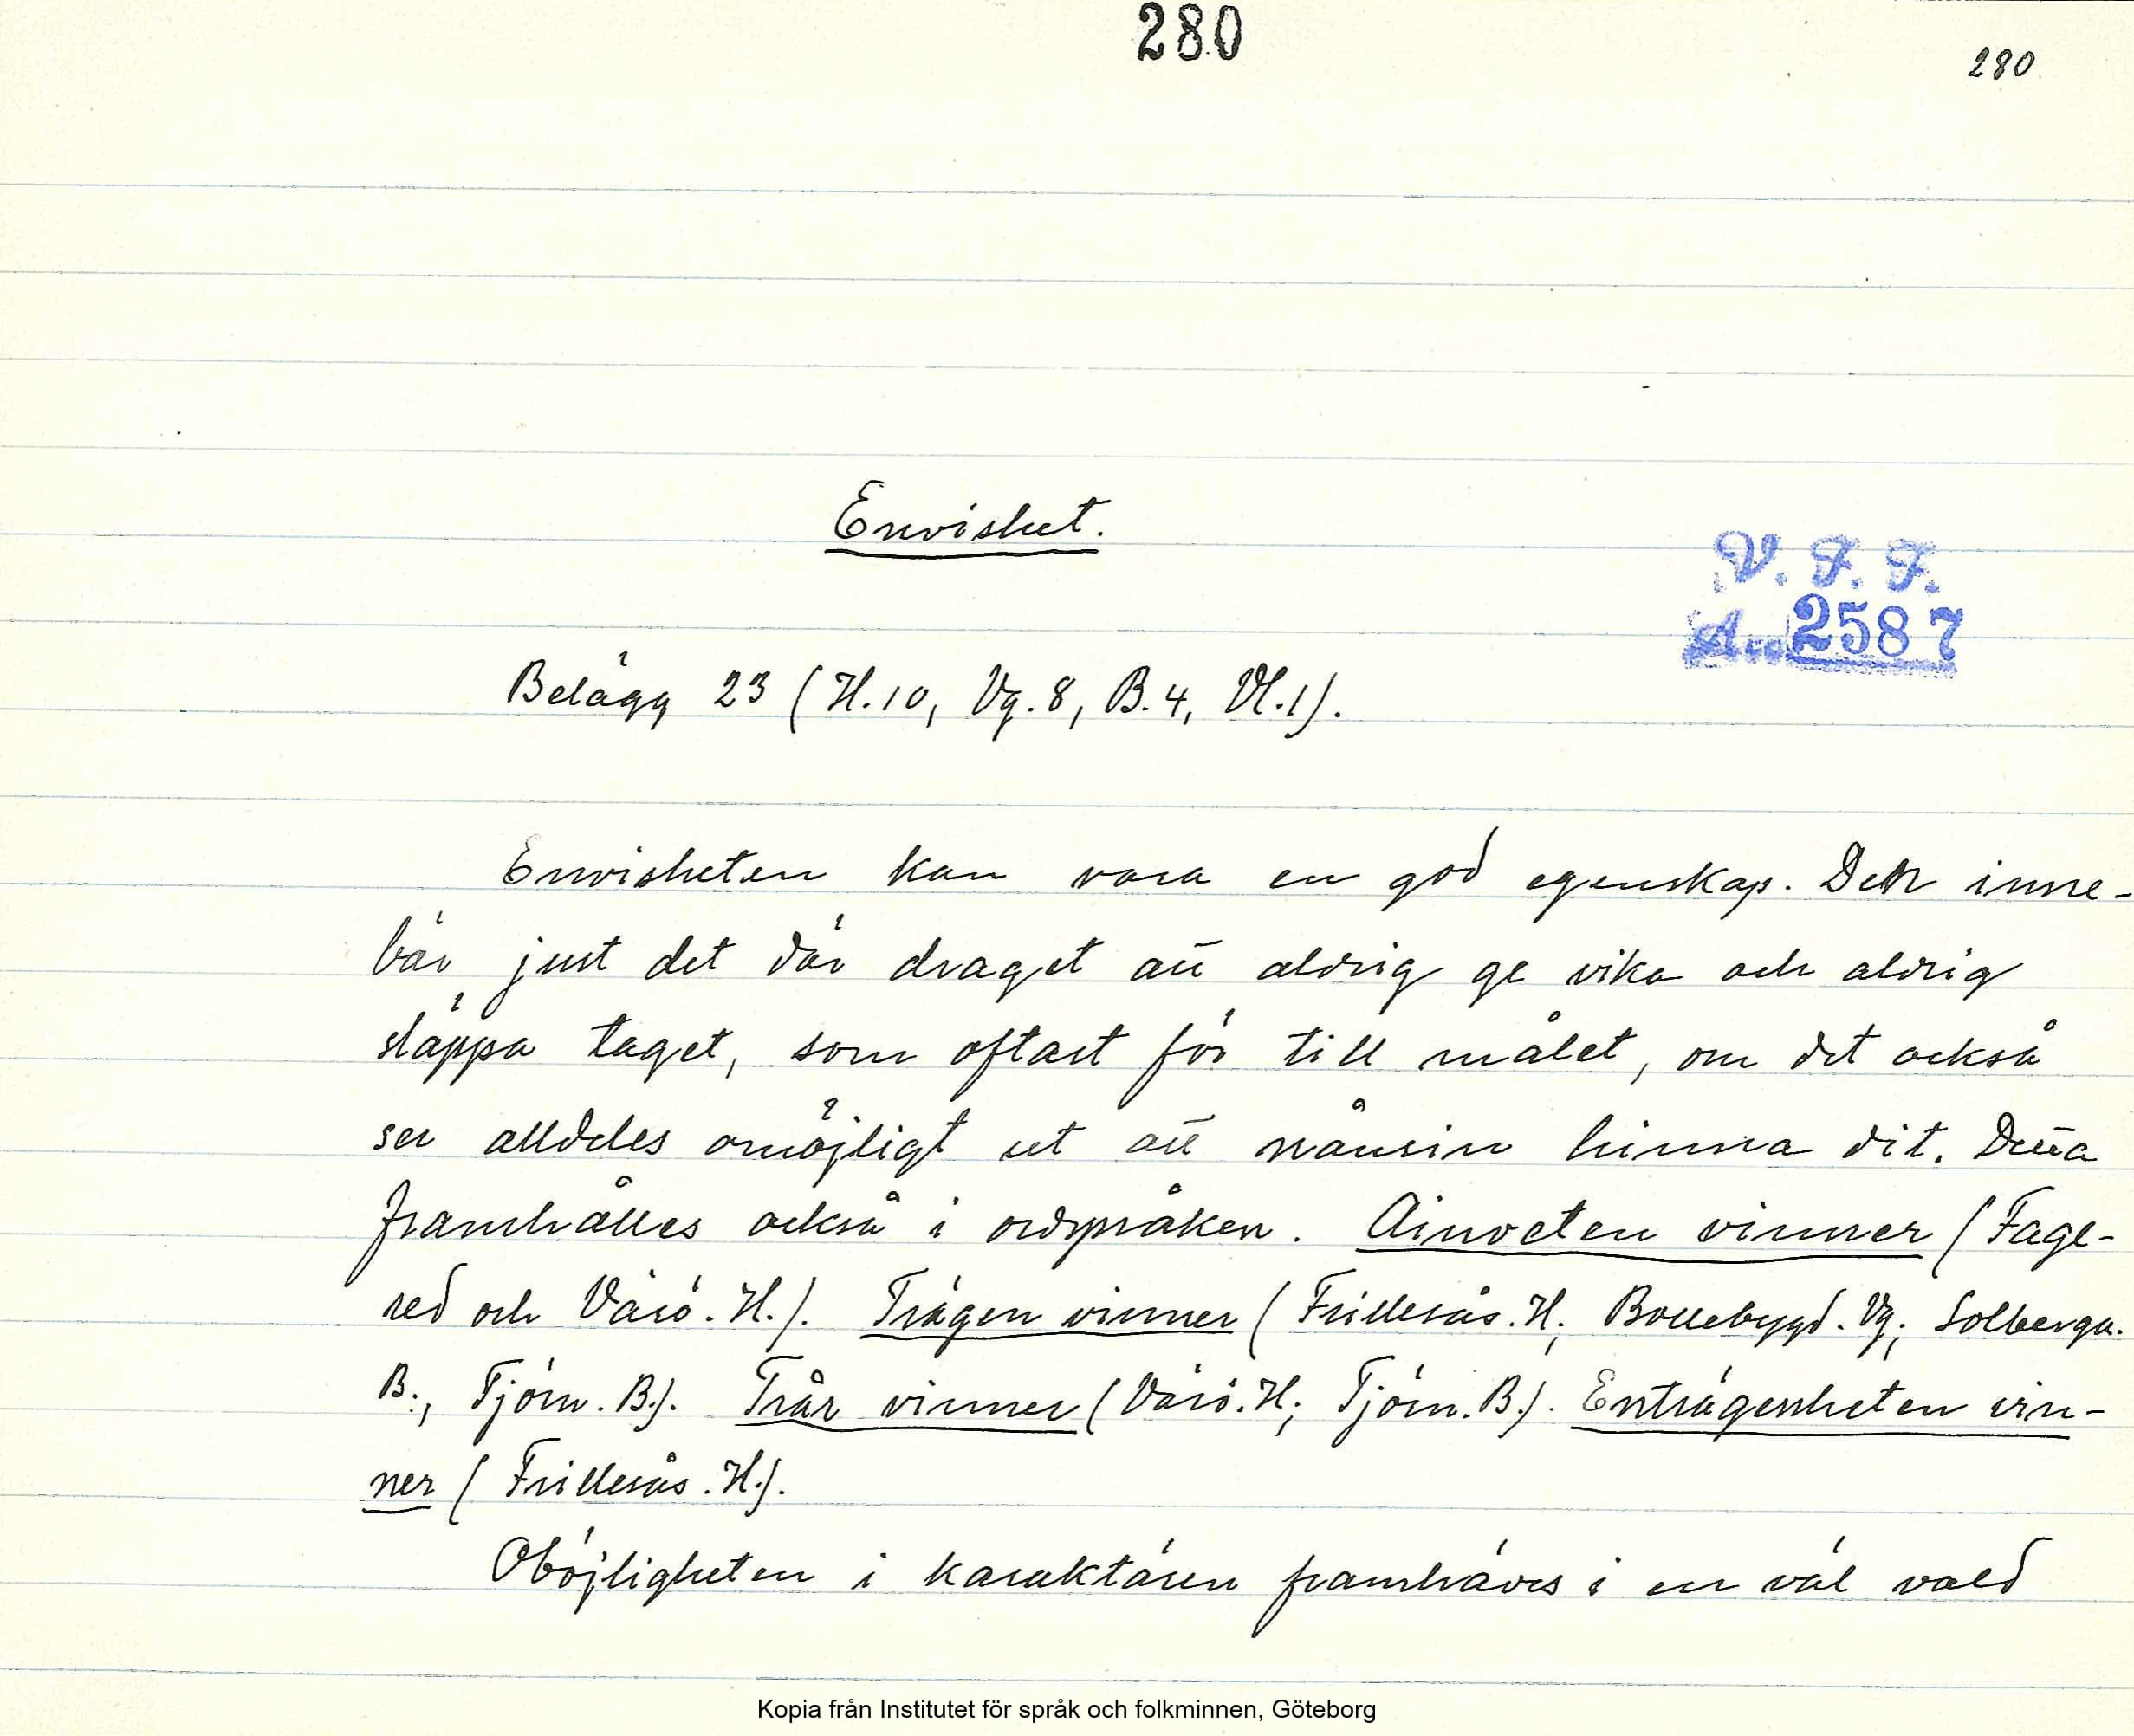 280
280
Envishet.
V. F. F.
Acc 2587
Belägg 23 (H. 10, Vg. 8, B. 4, Vl. 1).
Envisheten kan vara en god egenskap. Den inne-
bär just det där draget att aldrig ge vika och aldrig
släppa taget, som oftast för till målet, om det också
ser alldeles omöjligt ut att nånsin hinna dit. Detta
framhålles också i ordspråken. Ainveten vinner (Fage-
red och Värö. H.). Trägen vinner (Frillesås. H; Bollebygd. Vg; Solberga.
B.; Tjörn. B.). Trår vinner (Värö. H; Tjörn. B.). Enträgenheten vin-
ner (Frillesås. H.).
Oböjligheten i karaktären framhäves i en väl vald
Kopia från Institutet för språk och folkminnen, Göteborg